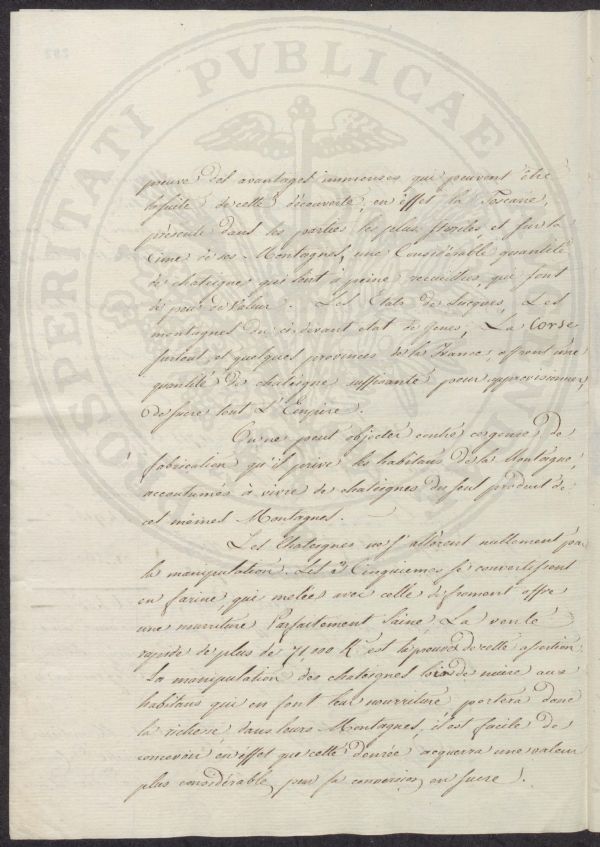 preuve des avantages immenses qui peuvent être
la suite de cette découverte, en effet la Toscane,
présente dans les parties les plus steriles et sur la
Cime de ses Montagnes, une Considérable quantité
de chateigne qui sont à peine recueillies, qui sont
de peu de Valeur. Les Etats de Lucques, Les
montagnes du ci devant etat de Genes, La Corse
surtout, et quelques provinces de la France, offrent une
quantité de chateigne suffisante pour approvisionner,
de sucre tout L'Empire.
On ne peut objecter contre ce genre de
fabrication qu'il prive les habitans de la Montagne,
accoutumés à vivre de chateignes du seul produit de
ces mêmes Montagnes.
Les Chateignes ne s'altèrent nullement par
la manipulation. Les Cinquiemes se convertissent
en farine, qui melée avec celle de froment offre
une nourriture Parfaitement Saine, La vente
rapide de plus de 71,000 est la preuve de cette assertion
La manipulation des chateignes loin de nuire aux
habitans qui en font leur nourriture portera donc
la richesse, dans leurs Montagnes, il est facile de
concevoir en effet que cette denrée acquerra une valeur
plus considérable, par sa conversion en sucre.
PROSPERITATI PVBLICAE